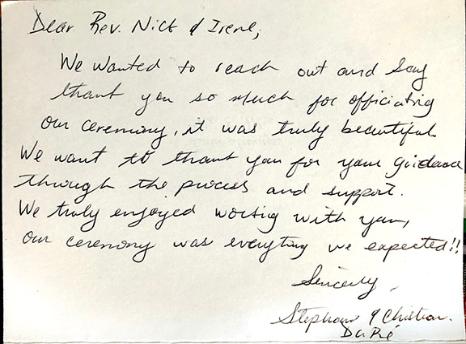 Dear Rev. Nick & Irene,
We wanted to reach out and say
thank you so much for officiating
our ceremony, it was truly beautiful
We want to thank you for your guidance
through the process and support.
We truly enjoyed working with you,
our ceremony was everything we expected!!
Sincerely,
Stephanie & Christian
DuRé